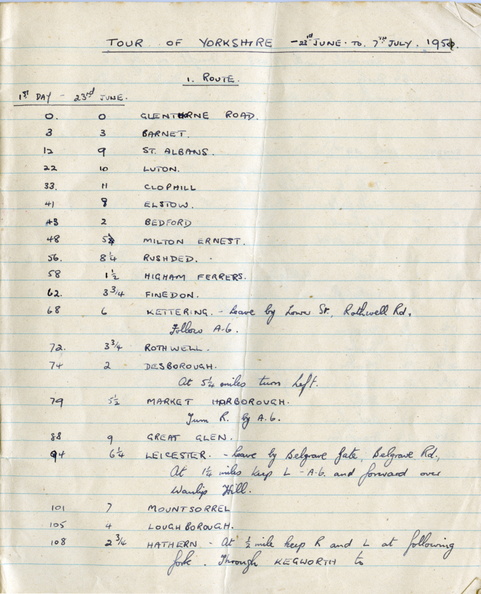 TOUR OF YORKSHIRE - 23rd JUNE. TO. 7TH JULY. 1950.
1. ROUTE.
1ST DAY - 23rd JUNE.
0. 0 GLENTHORNE ROAD.
3 3 BARNET.
12 9 ST. ALBANS.
22 10 LUTON.
33. 11 CLOPHILL
41 8 ELSTOW.
43 2 BEDFORD
48 5½ MILTON ERNEST.
56. 8¼ RUSHDED.
58 1½ HIGHAM FERRERS.
62. 3¾ FINEDON.
68 6 KETTERING. - Leave by Lower St., Rothwell Rd.
Follow A.6.
72. 3¾ ROTHWELL.
74 2 DESBOROUGH.
At 5¼ miles turn left.
79 5½ MARKET HARBOROUGH.
Turn R. by A.6.
88 9 GREAT GLEN.
94 6¼ LEICESTER. - Leave by Belgrave Gate, Belgrave Rd.,
At 1¼ miles keep L - A.6. and forward over
Wanlip Hill.
101 7 MOUNTSORREL
105 4 LOUGHBOROUGH.
108 2¾ HATHERN - At ½ mile keep R and L at following
fork. Through KEGWORTH to